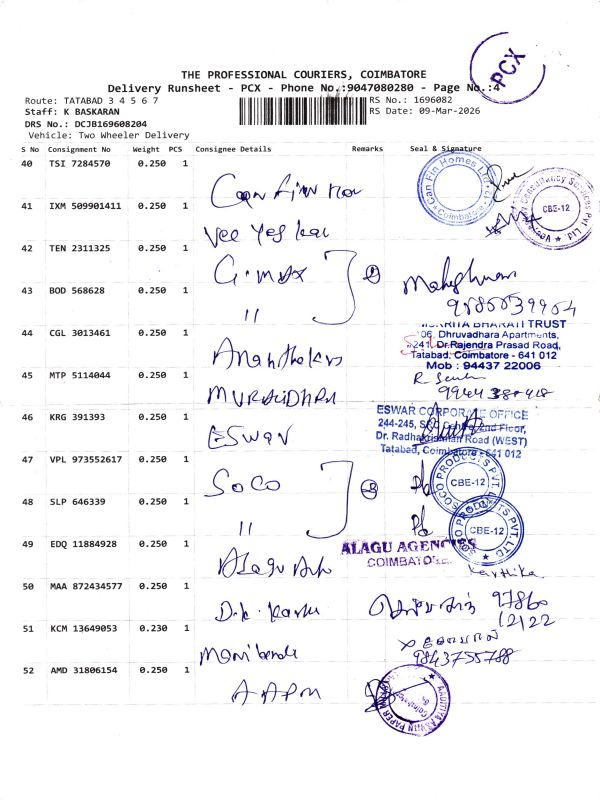 PCX
THE PROFESSIONAL COURIERS, COIMBATORE
Delivery Runsheet - PCX - Phone No.:9047080280 - Page No.:4
Route: TATABAD 3 4 5 6 7
RS No.: 1696082
Staff: K BASKARAN
RS Date: 09-Mar-2026
DRS No.: DCJB169608204
Vehicle: Two Wheeler Delivery
S No Consignment No Weight PCS Consignee Details Remarks Seal & Signature
40 TSI 7284570 0.250 1
Can Fin Homes Ltd. Coimbatore
41 IXM 509901411 0.250 1
Vee Yes
Consultancy Services Pvt. Ltd. CBE-12
42 TEN 2311325 0.250 1
G. max
43 BOD 568628 0.250 1
"
44 CGL 3013461 0.250 1
BHARATI TRUST
06, Dhruvadhara Apartments,
241, Dr.Rajendra Prasad Road,
Tatabad, Coimbatore - 641 012
Mob : 94437 22006
45 MTP 5114044 0.250 1
MURALIDHRN
46 KRG 391393 0.250 1
ESWAR
ESWAR CORPORATE OFFICE
244-245, Floor,
Dr. Radhakrishnan Road (WEST)
Tatabad, Coimbatore - 641 012
47 VPL 973552617 0.250 1
SOCO
SOCO PRODUCTS PVT. LTD CBE-12
48 SLP 646339 0.250 1
"
SOCO PRODUCTS PVT. LTD CBE-12
49 EDQ 11884928 0.250 1
ALAGU AGENCIES
COIMBATORE
Karthika
50 MAA 872434577 0.250 1
D.k.
51 KCM 13649053 0.230 1
9843755788
52 AMD 31806154 0.250 1